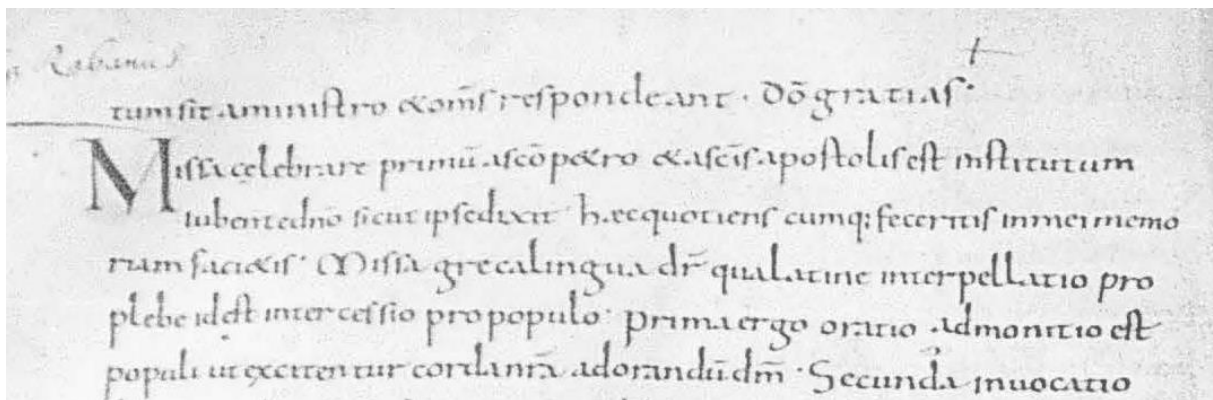 Rabanus
tum sit a ministro & om̄s respondeant . dō gratias .
Missa cęlebrare primū a scō p&ro & a scīs apostolis est institutum
iubente dn̄o sicut ipse dixit hæc quotienscumq; feceritis in mei memo
riam faci&is . Missa greca lingua dr̄ qua latine interpellatio pro
plebe id est intercessio pro populo . prima ergo oratio admonitio est
populi ut excitentur corda nr̄a ad orandū dm̄ . Secunda invocatio